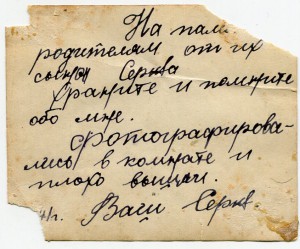 На пам
родителям от их
сынон Сергва
Храните и помните
обо мне.
Фотографирова-
лись в комнате и
плохо вышли.
41г. Ваш Серг.